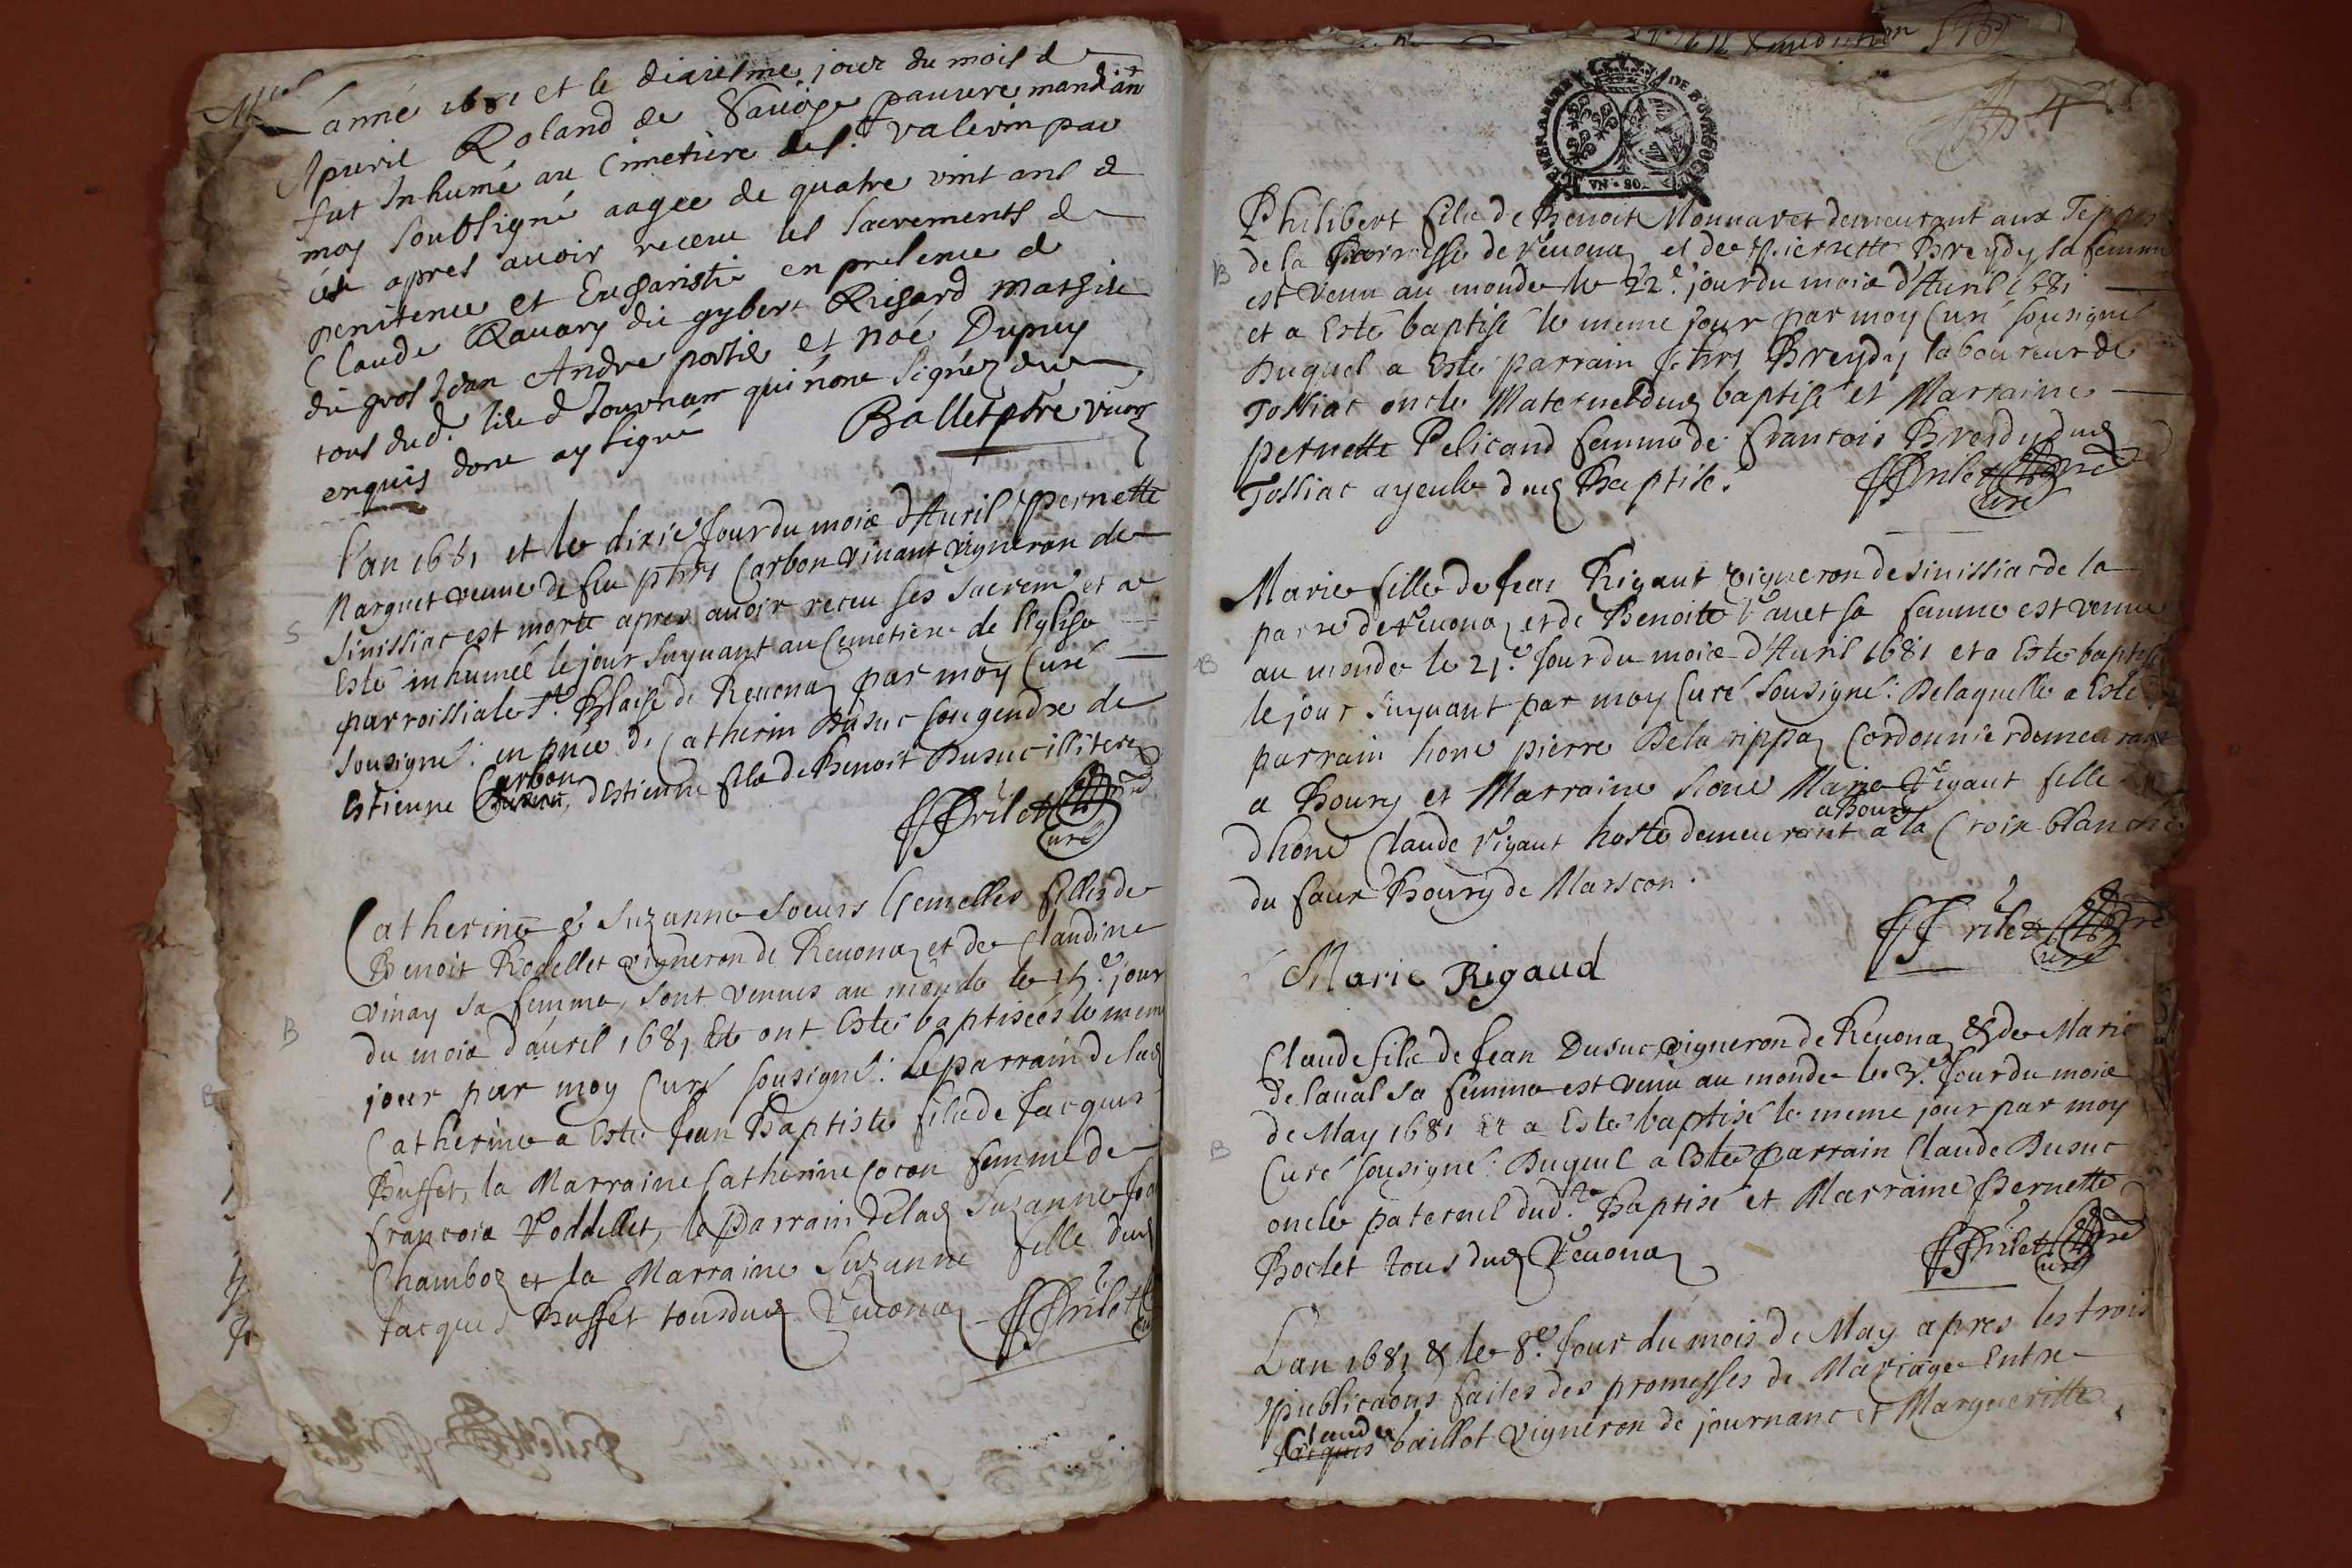 L'anné 1681 et le dixiesme jour du mois d
Apuril Roland de Sauoge pauure mandian
fut Inhumé au Cimetiere de St. valerin par
moy Soubsigné aagee de quatre vint ans &
apres auoir receu les Sacrements de
penitence et Eucharistie en presence d
Claude Rauary dit gybert Richard mathie
dit gros Jean Andre portie et noé Dupuy
tous dud. lieu d Journan qui nont Signéz de
enquis dont ay Signé Ballet ptre vicar
L'an 1681 et le dixie Jour du moix d'Auril Pernette
Narguet veuue de feu phrt Carbon viuant vigneron de
Sinissiat est morte apres auoir receu ses Sacrem et a
Esté inhumeé le jour Suyuant au Cemetiere de l'Eglise
parroissiale St. Blaise de Reuonas par moy Curé
Sousigné: en pnce de Catherin Dusuc son gendre de
Estienne Carbon, d'Estienne fils de Benoit Dusuc illiterez
Prilet ptre
Curé
Catherine & Suzanne soeurs Gemelles filles de
Benoit Rodellet vigneron de Reuonas et de Claudine
vinay sa femme, sont venues au monde le 15e. jour
du moix d'auril 1681 Et ont Esté baptiseés le meme
jour par moy Curé sousigné: Le parrain de lad
Catherine a Esté Jean Baptiste fils de Jacques
Buffet, la Marraine Catherine Cocon femme de
francois Roddellet, le Parrain de lad Suzanne
Chamboz et la Marraine Suzanne fille dud
Jacques Buffet tous dud Reuonas Prilet
4
GENERALITE DE BOVRGOGNE
VN · SOL
Philibert fils de Benoit Monnaret demeurant aux Teppes
de la Parroisse de Reuonas et de Pierrette Breydy sa femme
est venu au monde le 22e. jour du moix d'Auril 1681
et a Esté baptisé le meme jour par moy Curé sousigné
Duquel a Esté parrain phrt Breydy laboureur de
Tossiat oncle Maternel dud baptisé et Marraine
pernette Pelicand femme de francois Breydy dud
Tossiat ayeule dud Baptisé. Prilet ptre
Curé
Marie fille de Jean Rigaut vigneron de Sinissiat de la
parre de Reuonas et de Benoite Rauet sa femme est venue
au monde le 21e. Jour du moix d'Auril 1681 et a Esté baptisé
le jour Suyuant par moy Curé Sousigné: Delaquelle a Esté
parrain hone pierre Delarippa Cordonnier demeurant
a Bourg et Marraine hone Marie Rigaut fille
d'hone Claude Rigaut hoste demeurant a Bourg a la Croix blanche
du faux Bourg de Mascon.
Prilet ptre
Curé
Marie Rigaud
Claude fils de Jean Dusuc vigneron de Reuonas & de Marie
de laual sa femme est venu au monde le 3e. Jour du moix
de May 1681 Et a Esté baptisé le meme jour par moy
Curé sousigné: Duquel a Esté Parrain Claude Dusuc
oncle paternel dud. Baptisé et Marraine Pernette
Boclet tous dud Reuonas Prilet ptre
Curé
L'an 1681 & le 8e. Jour du mois de May apres les trois
publicaons faites des promesses de Mariage Entre
Claude Jacques baillot vigneron de journanc et Margueritte